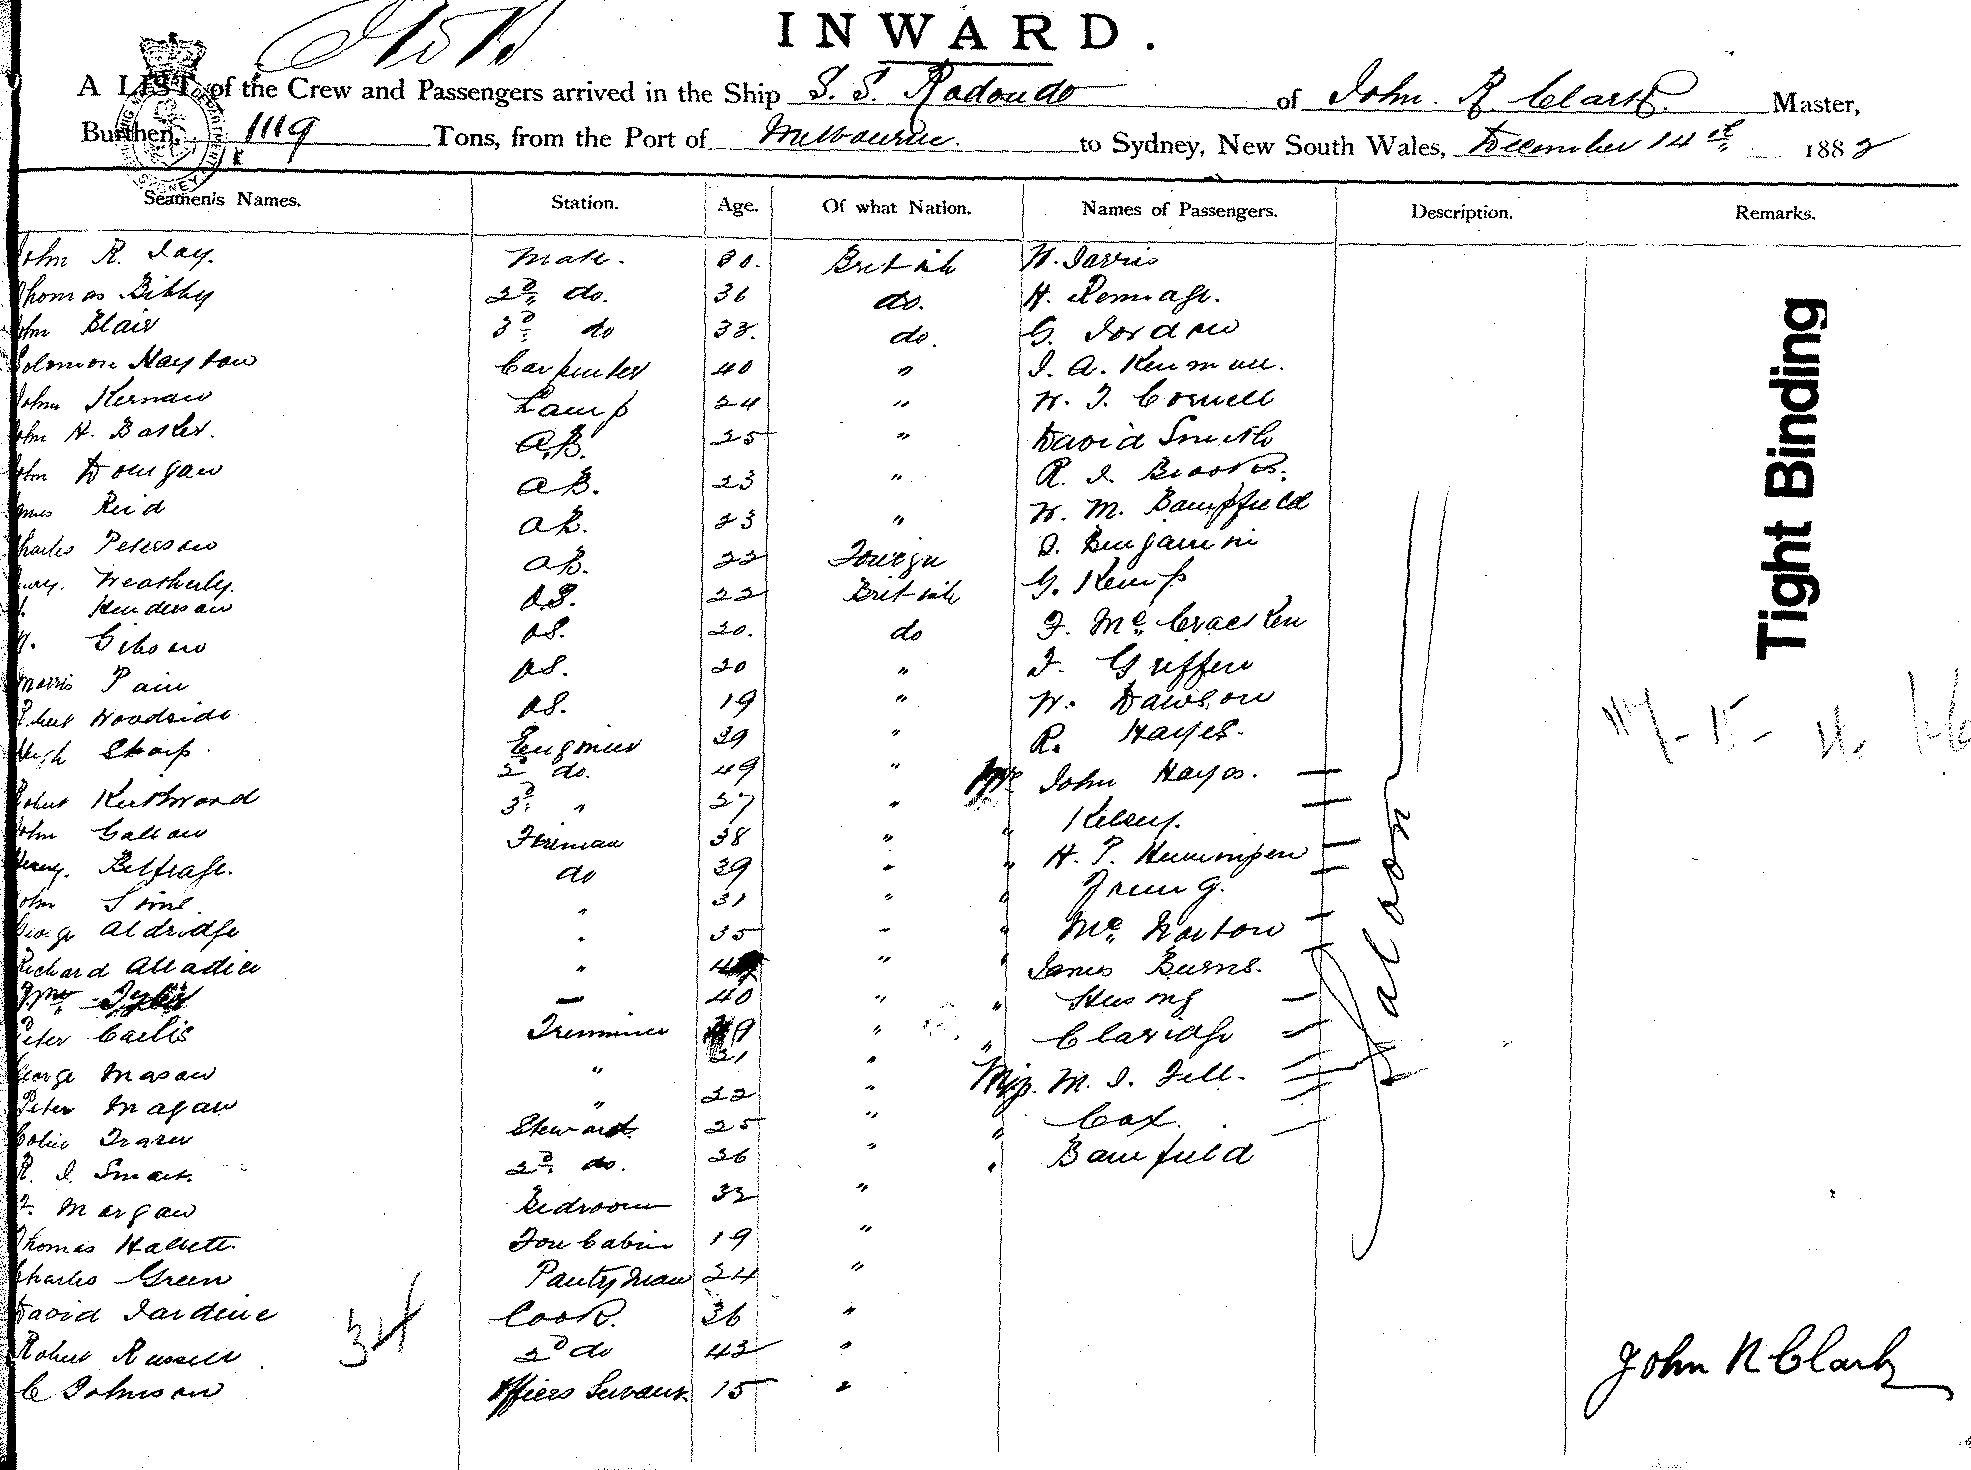 INWARD.
A LIST of the Crew and Passengers arrived in the Ship S. S. Rodondo of John. R Clark. Master,
Burthen, 1119 Tons, from the Port of Melbourne. to Sydney, New South Wales, December 14th 1882
Seamen's Names. Station. Age. Of what Nation. Names of Passengers. Description. Remarks.
John R. Jay. Mate. 30. British W. Jarvis
Thomas Bibby 2D do. 36 do. H.
John Blair 3D do 33. do. G. Jordan
Solomon Hayton Carpenter 40 " J. A.
John Kernan Lamp 24 " W. J. Cornell
John H. Baster. A.B. 25 " David Smith
John Dougan AB. 23 " R. J. Brooks.
James Reid AB. 23 " W. M. Bampfield
Charles Peterson AB. 22 Foreign D. Benjamin
Weatherly. OS. 22 British G. Kemp
Henderson OS. 20. do F. McCracken
Gibson OS. 20 " J. Griffen
Morris Pain OS. 19 " W. Dawson
Robert Woodside Engineer 39 " R. Hayes.
Hugh Sharp. 2D do. 49 " Mr John Hayes.
Robert Kirkwood 3D " 27 " " Kelsey.
John Callan Fireman 38 " " H. P.
Henry. Belfrage. do 39 " " Young.
John Sims " 31 " " Mc Norton
George Aldridge " 35 " " James Burns.
Richard Alladice " "
40 " " Claridge
Peter Trimmer 19 " Miss. M. J. Fell.
George Mason " 21 " " Cox.
Peter Magan " 22 " " Bamfield
Colin Frazer Steward 25 "
R. J. Smart 2D do. 26 "
F. Morgan Bedroom 32 "
Thomas Hallett Fore Cabin 19 "
Charles Green Pantryman 24 "
David Jardine Cook. 36 "
Robert Russell 2D do 42 "
C Johnson Officers Servant 15 "
34
Saloon
Tight Binding
John R Clark